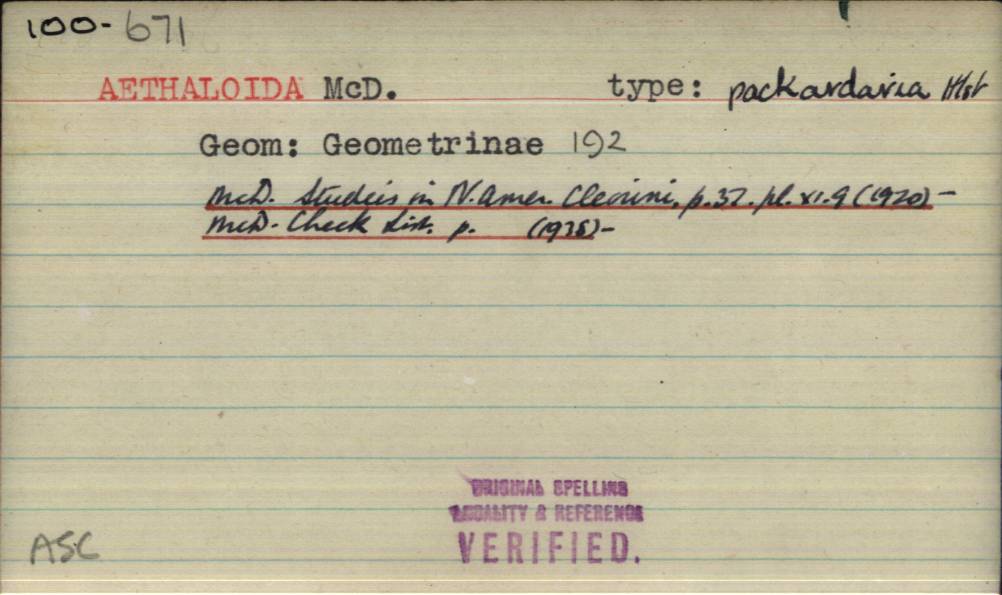 100-671
AETHALOIDA McD. type: packardaria Hlst
Geom: Geometrinae 192
McD. Studies in N. Amer. Cleorini, p.37. pl. xi.9 (1920) -
McD. Check List. p. (1938) -
ORIGINAL SPELLING
LOCALITY & REFERENCE
VERIFIED.
ASC